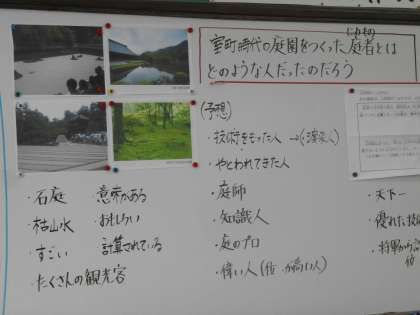 室町時代の庭園をつくった庭者とは
どのような人だったのだろう
(予想)
・技術をもった人
・やとわれてきた人
・庭師
・知識人
・庭のプロ
・偉い人(位が高い人)
・石庭 意味がある
・枯山水 おもしろい
・すごい 計算されている
・たくさんの観光客
・天下一
・優れた技
・将軍から